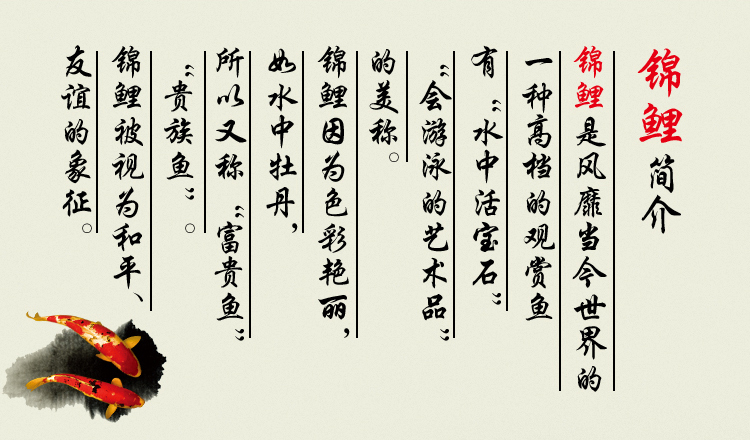 锦鲤简介
锦鲤是风靡当今世界的
一种高档的观赏鱼
有“水中活宝石”
“会游泳的艺术品”
的美称。
锦鲤因为色彩艳丽，
如水中牡丹，
所以又称“富贵鱼”
“贵族鱼”。
锦鲤被视为和平、
友谊的象征。